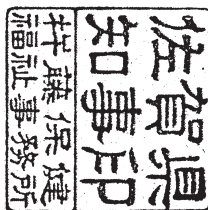 佐賀県
知事印
杵藤保健
福祉事務所